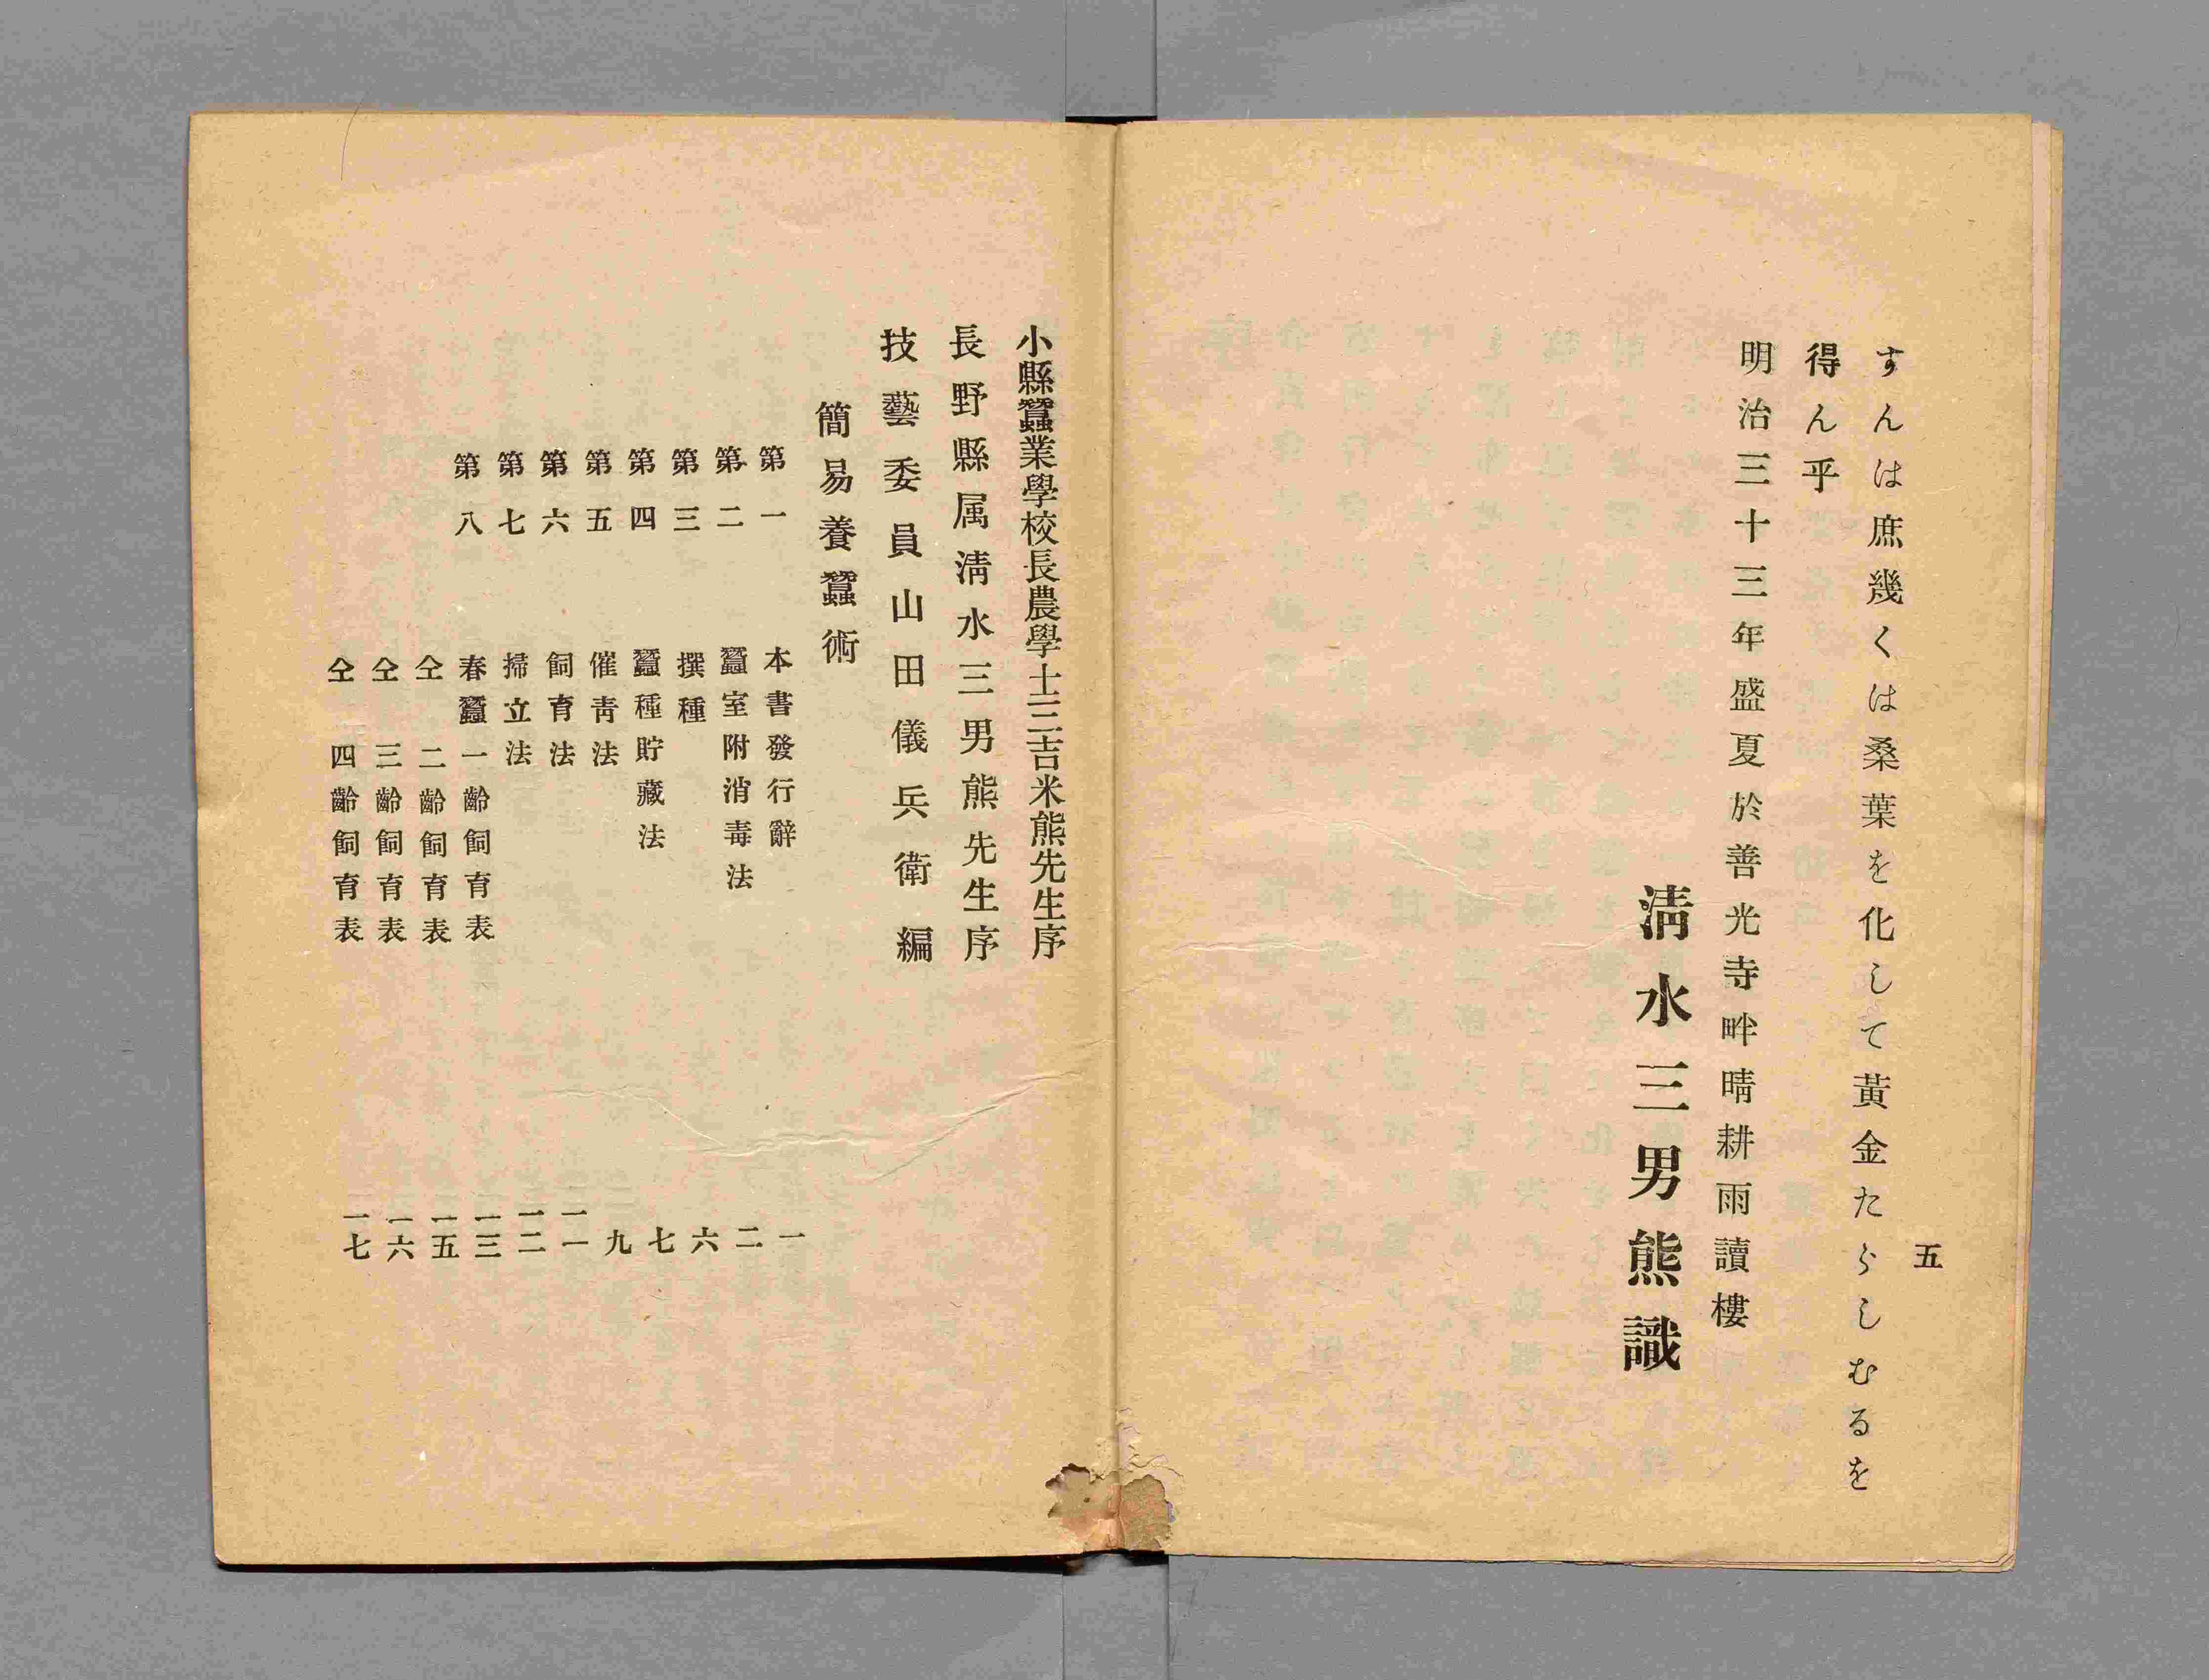 五
すんは庶幾くは桑葉を化して黃金たらしむるを
得ん乎
明治三十三年盛夏於善光寺畔晴耕雨讀樓
淸水三男熊識
小縣蠶業學校長農學士三吉米熊先生序
長野縣属淸水三男熊先生序
技藝委員山田儀兵衛編
簡易養蠶術
第一 本書發行辭 一
第二 蠶室附消毒法 二
第三 撰種 六
第四 蠶種貯藏法 七
第五 催靑法 九
第六 飼育法 一一
第七 掃立法 一二
第八 春蠶一齡飼育表 一三
仝 二齡飼育表 一五
仝 三齡飼育表 一六
仝 四齡飼育表 一七